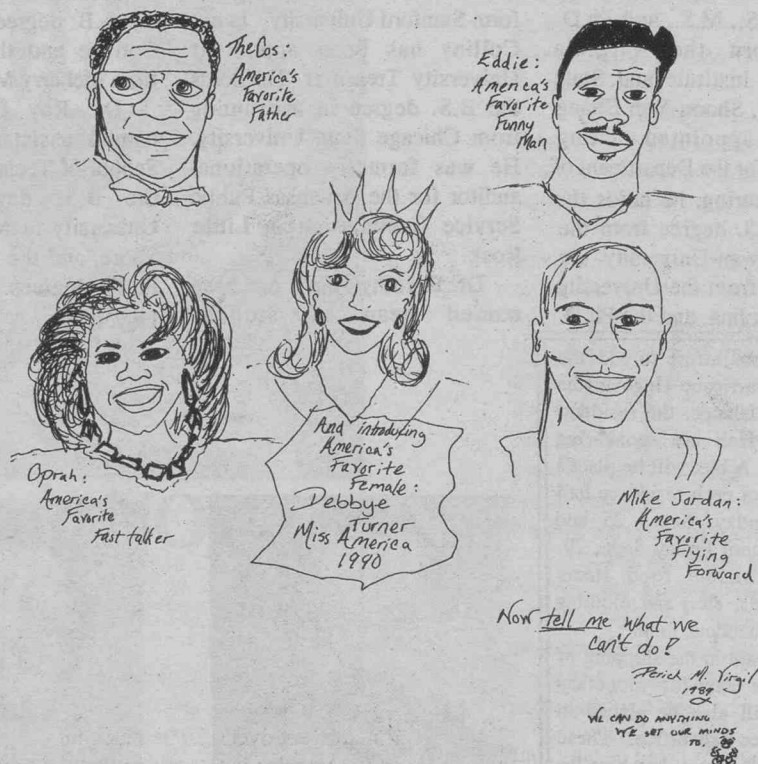 The Cos:
America's
Favorite
Father
Eddie:
America's
Favorite
Funny
Man
Oprah:
America's
Favorite
Fast talker
And introducing
America's
Favorite
Female:
Debbye
Turner
Miss America
1990
Mike Jordan:
America's
Favorite
Flying
Forward
Now tell me what we
can't do!
M. Virgil
1989
WE CAN DO ANYTHING
WE SET OUR MINDS
TO.